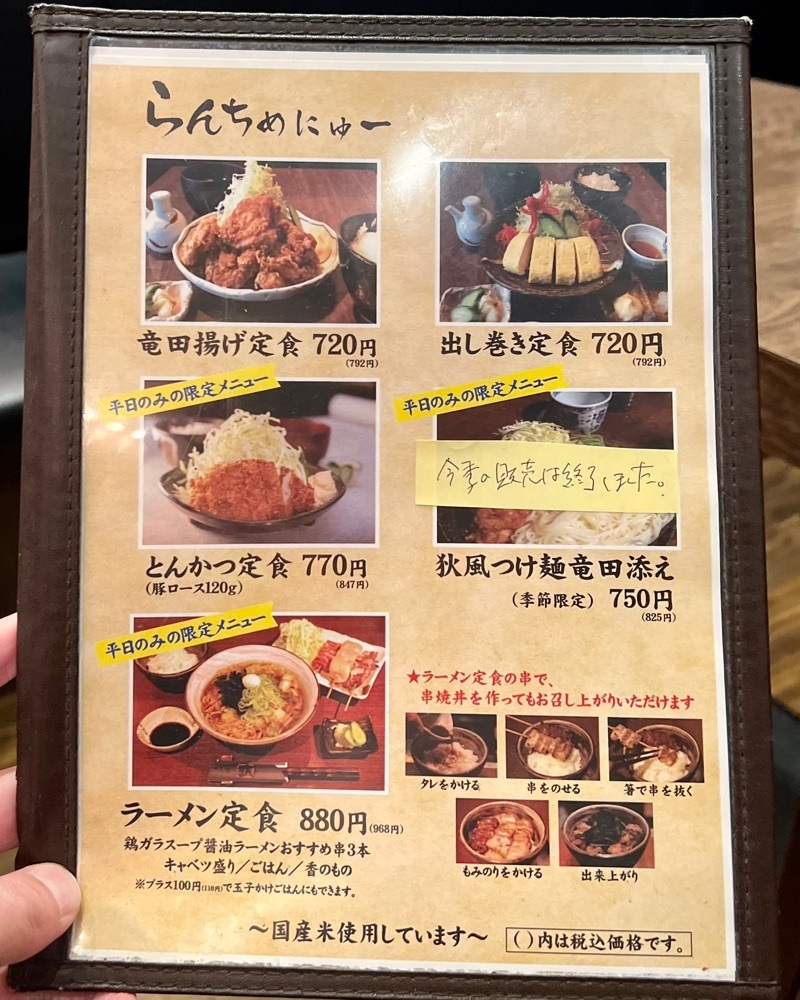 らんちめにゅー
竜田揚げ定食 720円
(792円)
出し巻き定食 720円
(792円)
平日のみの限定メニュー
とんかつ定食 770円
(豚ロース120g)
(847円)
平日のみの限定メニュー
今季の販売は終了しました。
狄風つけ麺竜田添え
(季節限定) 750円
(825円)
平日のみの限定メニュー
ラーメン定食 880円(968円)
鶏ガラスープ醤油ラーメンおすすめ串3本
キャベツ盛り／ごはん／香のもの
※プラス100円(110円)で玉子かけごはんにもできます。
★ラーメン定食の串で、
串焼丼を作ってもお召し上がりいただけます
タレをかける
串をのせる
箸で串を抜く
もみのりをかける
出来上がり
〜国産米使用しています〜
( )内は税込価格です。